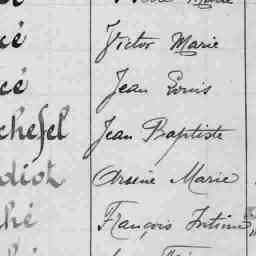 cé Victor Marie
cé Jean Louis
chefel Jean Baptiste
diot Arsène Marie
ché François